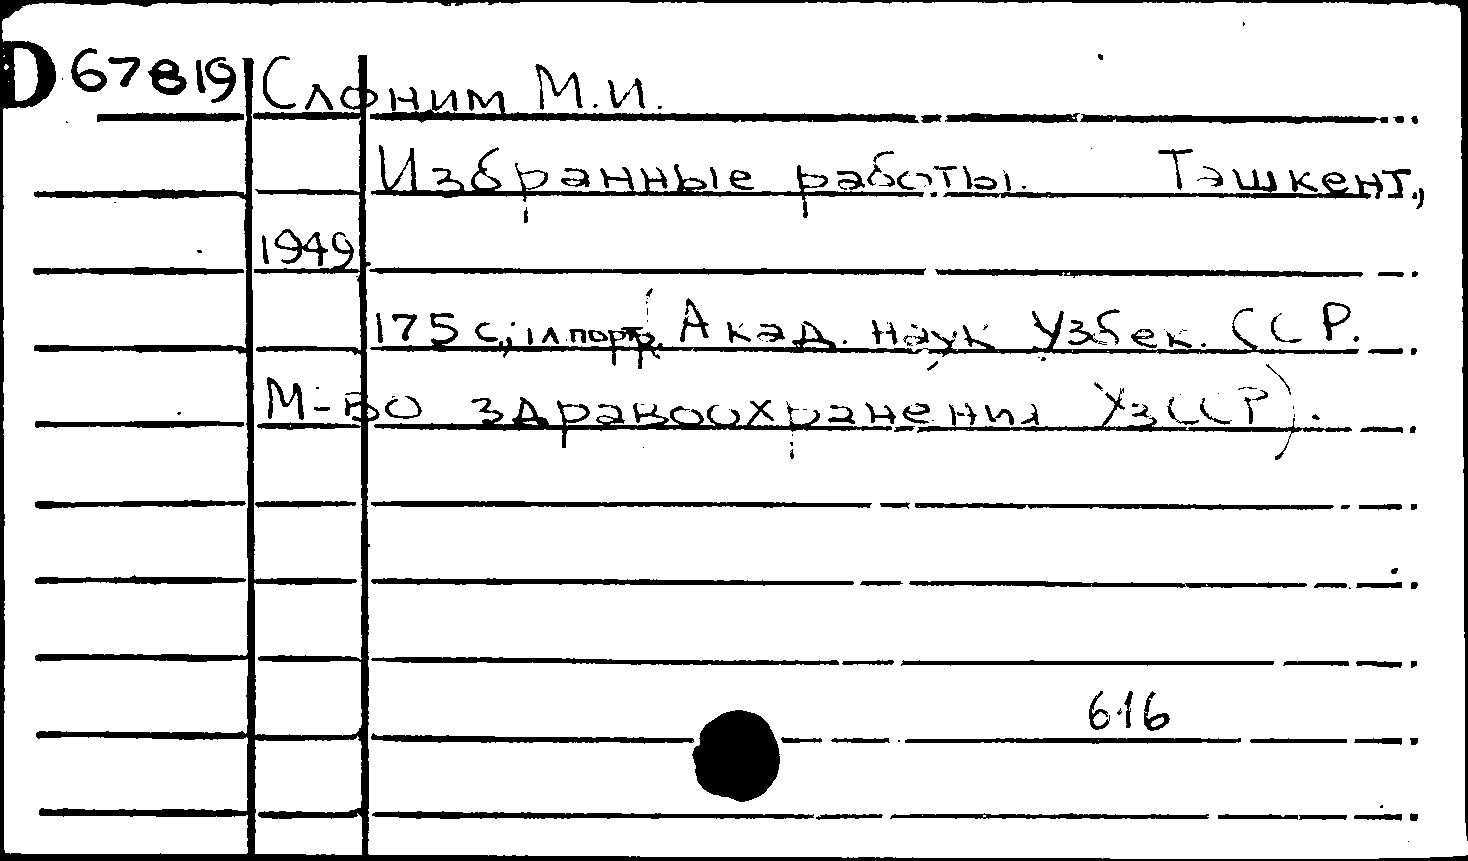 D 67819 Слоним М.И.
Избранные работы. Ташкент.,
1949.
175 с.; 1 л. портр. (Акад. наук Узбек. ССР.
М-во здравоохранения УзССР).
616